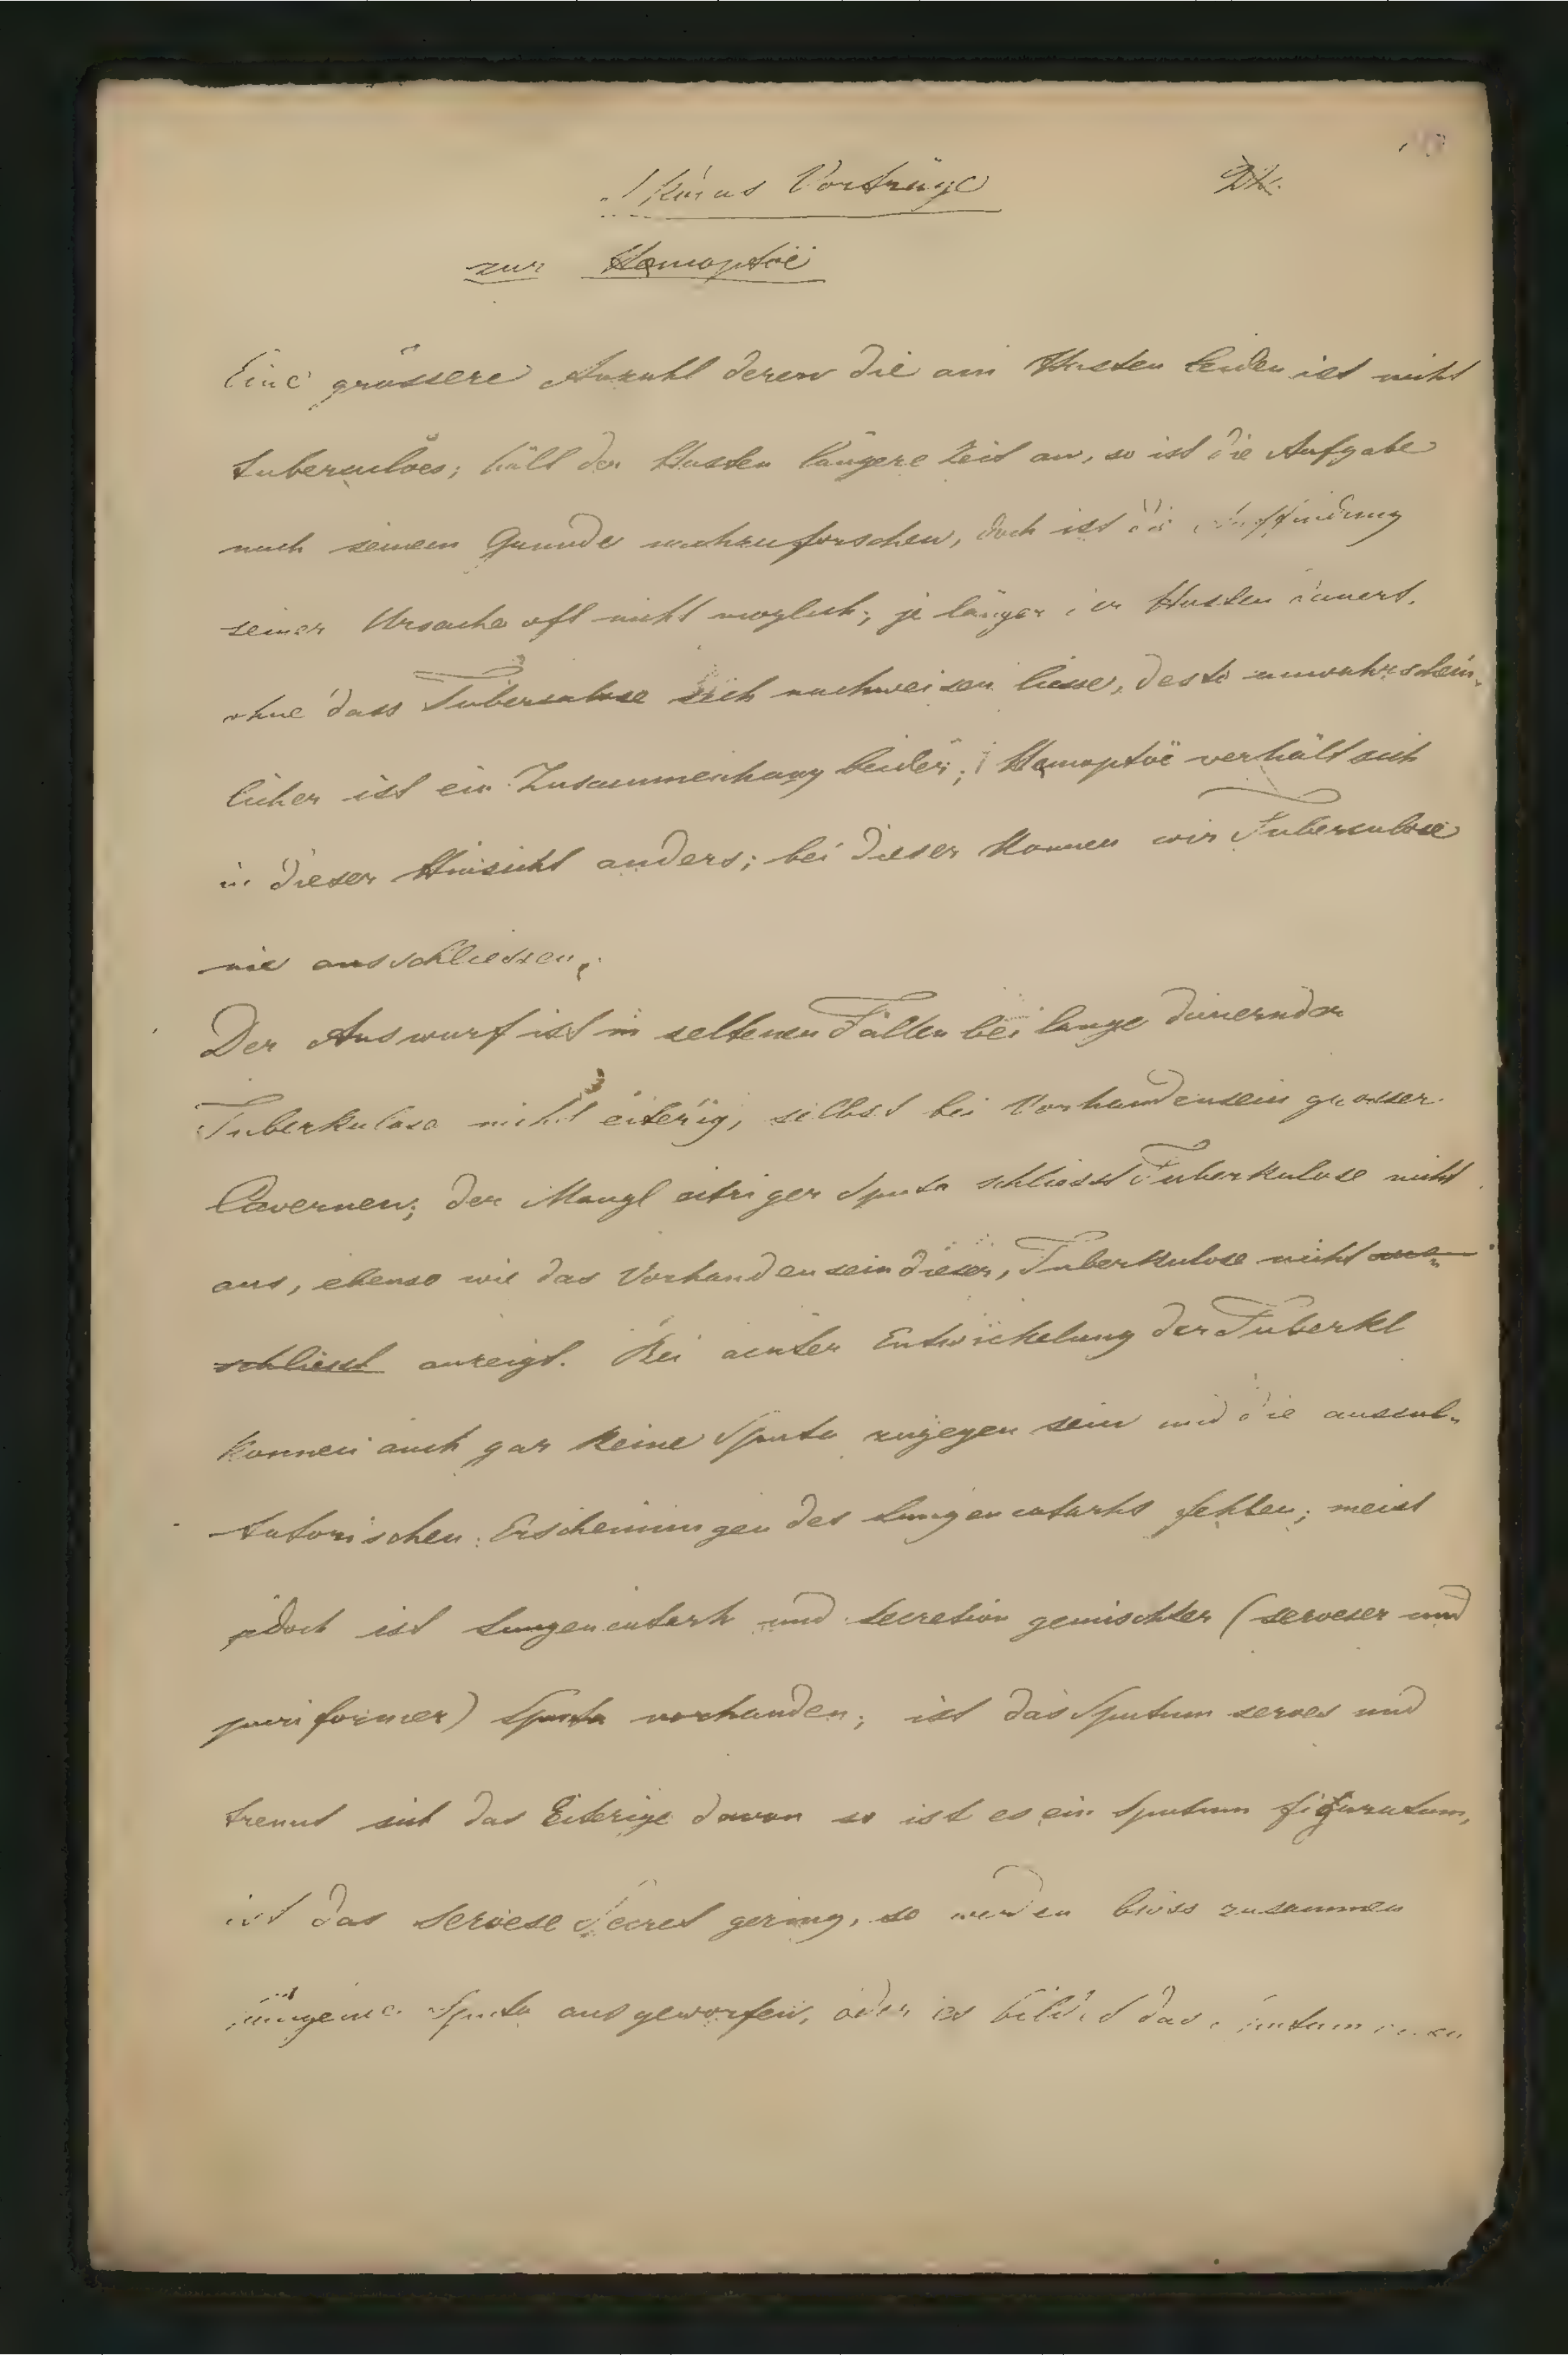 Skodas Vorträge
zur Hämoptoë
Eine grössere Anzahl deren die am Husten leiden ist nicht
tuberculös; hält der Husten längere Zeit an, so ist die Aufgabe
nach seinem Grunde nachzuforschen, doch ist die
seiner Ursache oft nicht moglich; je länger der Husten dauert,
ohne dass Tuberculose sich nachweisen liesse, desto unwahrschein-
licher ist ein Zusammenhang beider; Hämoptoë verhält sich
in dieser Hinsicht anders; bei dieser konnen wir Tuberculose
nie ausschliessen;
Der Auswurf ist in seltenen Fällen bei lange dauernder
Tuberkulose nicht eiterig, selbst bei Vorhandensein grosser
Cavernen; der Mangl eitriger Sputa schliesst Tuberkulose nicht
aus, ebenso wie das Vorhandensein dieser, Tuberkulose nicht aus-
schliesst anzeigt. Bei acuter Entwickelung der Tuberkl
konnen auch gar keine Sputa zugegen sein und die auscul-
tatorischen Erscheinungen des Lungencatarhs fehlen; meist
jedoch ist Lungencatarh und Secretion gemischter (seroeser und
puriformer) Sputa vorhanden; ist das Sputum seroes und
trennt sich das Eiterige davon so ist es ein Sputum figuratum,
ist das seroese Secret gering, so werden bloss zusammen
Sputa ausgeworfen, oder es bildet das